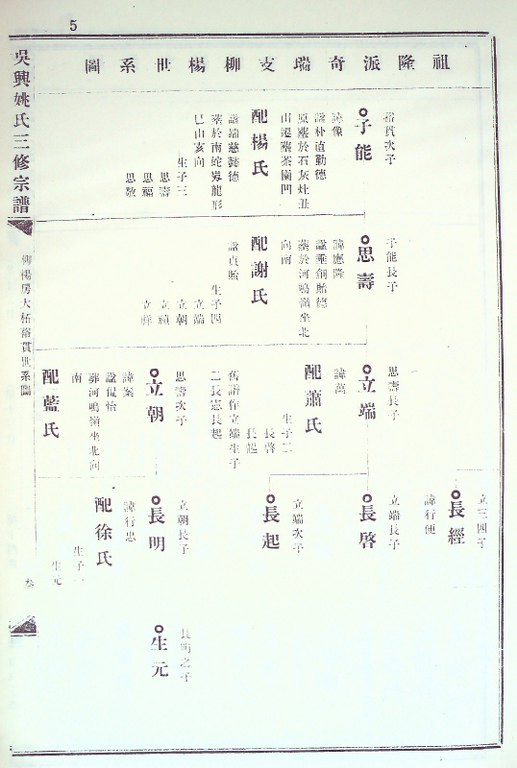 5
祖隆派奇瑞支柳楊世系圖
裕貫次子
子能
諱像
諡朴直勤德
原塟於石灰灶丑
山遷塟茶園凹
配楊氏
諡端慈懿德
塟於南蛇嶺龍形
巳山亥向
生子三
思壽
思福
思敬
子能長子
思壽
諱應隆
諡垂創貽德
塟於河鳴嶺坐北
向南
配謝氏
諡貞
生子四
立端
立朝
立
立
思壽長子
立端
諱萬
配蕭氏
生子二
長啓
長起
舊譜作立端生子
二長憲長起
思壽次子
立朝
諱案
諡
葬河鳴嶺坐北向
南
配藍氏
立三四子
長經
諱行便
立端長子
長啓
立端次子
長起
立朝長子
長明
諱行忠
配徐氏
生子一
生元
長明之子
生元
吳興姚氏三修宗譜
柳楊房大柘裕貫世系圖